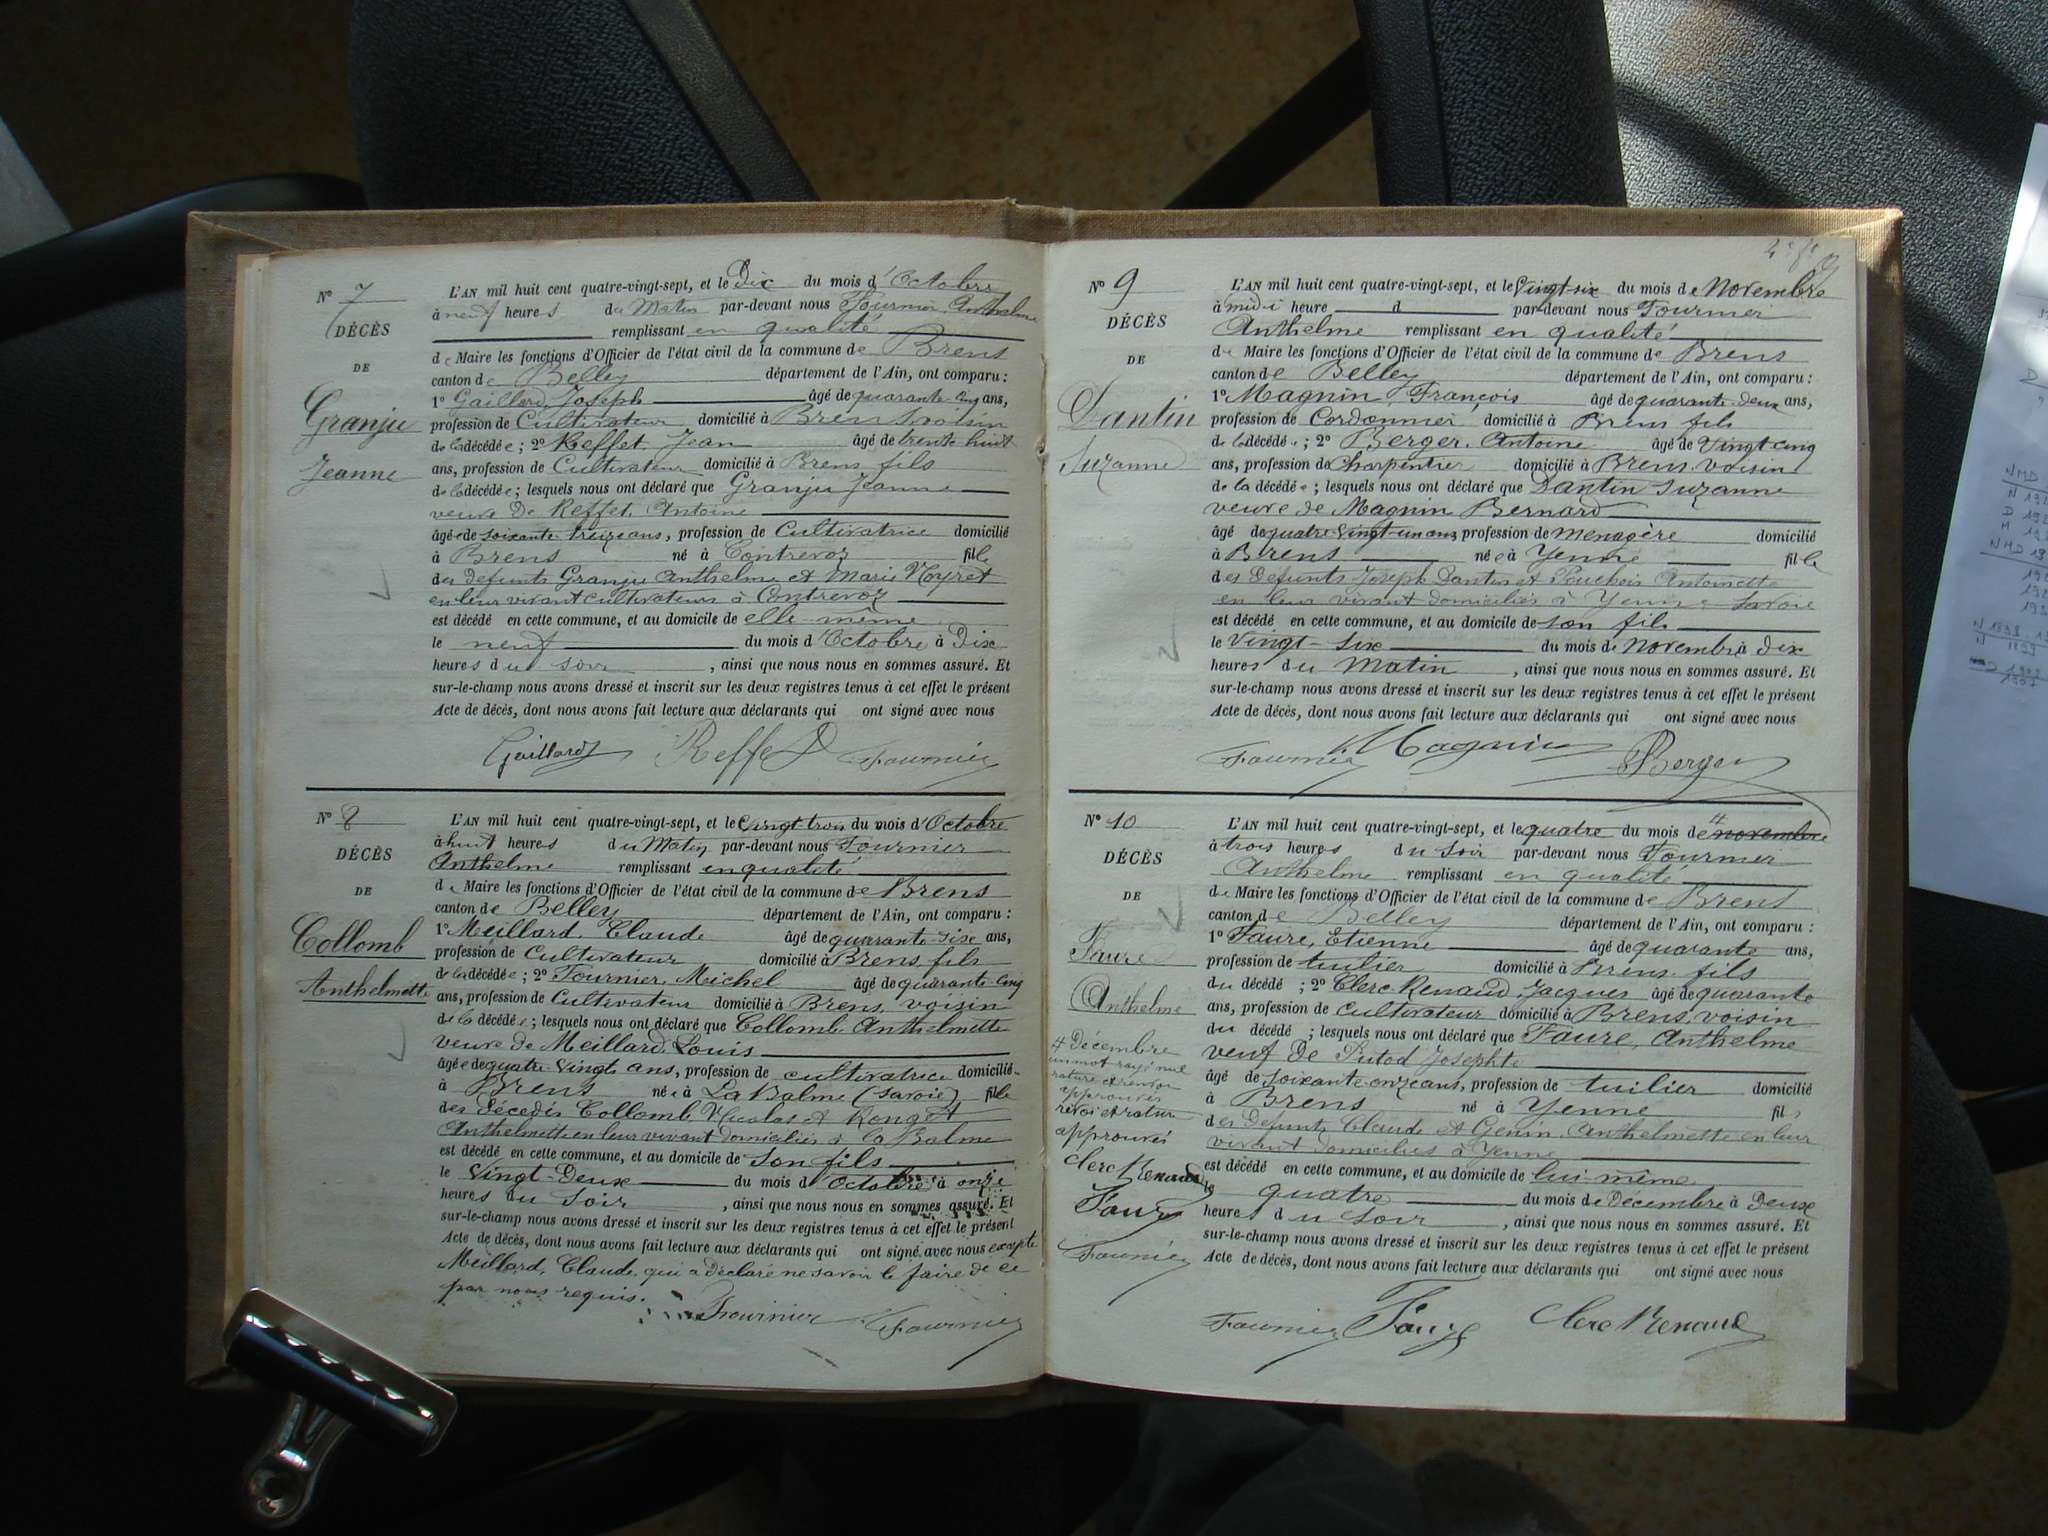 N° 7
DÉCÈS
DE
Granju
Jeanne
L'AN mil huit cent quatre-vingt-sept, et le Dix du mois d'Octobre
à neuf heures du Matin par-devant nous Fournier Anthelme
remplissant en qualité
de Maire les fonctions d'Officier de l'état civil de la commune de Brens
canton de Belley département de l'Ain, ont comparu :
1° Gaillard Joseph âgé de quarante cinq ans,
profession de Cultivateur domicilié à Brens voisin
de la décédée ; 2° Reffet Jean âgé de trente huit
ans, profession de Cultivateur domicilié à Brens fils
de la décédée ; lesquels nous ont déclaré que Granju Jeanne
veuve de Reffet Antoine
âgée de soixante treize ans, profession de Cultivatrice domicilié
à Brens né à Contrevoz fille
des defunts Granju Anthelme et Marie Noyret
en leur vivant cultivateurs à Contrevoz
est décédé en cette commune, et au domicile de elle-même
le neuf du mois d'Octobre à Dix
heures du soir , ainsi que nous nous en sommes assuré. Et
sur-le-champ nous avons dressé et inscrit sur les deux registres tenus à cet effet le présent
Acte de décès, dont nous avons fait lecture aux déclarants qui ont signé avec nous
Gaillard Reffet Fournier
N° 8
DÉCÈS
DE
Collomb
Anthelmette
L'AN mil huit cent quatre-vingt-sept, et le vingt trois du mois d'Octobre
à huit heures du Matin par-devant nous Fournier
Anthelme remplissant en qualité
de Maire les fonctions d'Officier de l'état civil de la commune de Brens
canton de Belley département de l'Ain, ont comparu :
1° Meillard, Claude âgé de quarante-six ans,
profession de Cultivateur domicilié à Brens, fils
de la décédée ; 2° Fournier, Michel âgé de quarante-cinq
ans, profession de Cultivateur domicilié à Brens, voisin
de la décédée ; lesquels nous ont déclaré que Collomb Anthelmette
veuve de Meillard, Louis
âgée de quatre vingts ans, profession de cultivatrice domicilié
à Brens née à La Balme (Savoie) fille
des décédés Collomb, Nicolas et Ronget
Anthelmette en leur vivant domiciliés à la Balme
est décédé en cette commune, et au domicile de son fils
le vingt-Deux du mois d'Octobre à onze
heures du soir , ainsi que nous nous en sommes assuré. Et
sur-le-champ nous avons dressé et inscrit sur les deux registres tenus à cet effet le présent
Acte de décès, dont nous avons fait lecture aux déclarants qui ont signé avec nous excepté
Meillard, Claude, qui a déclaré ne savoir le faire de ce
par nous requis.
Fournier Fournier
N° 9
DÉCÈS
DE
Dantin
Suzanne
L'AN mil huit cent quatre-vingt-sept, et le Vingt-six du mois de Novembre
à midi heure d par-devant nous Fournier
Anthelme remplissant en qualité
de Maire les fonctions d'Officier de l'état civil de la commune de Brens
canton de Belley département de l'Ain, ont comparu :
1° Magnin, François âgé de quarante-deux ans,
profession de Cordonnier domicilié à Brens fils
de la décédée ; 2° Berger, Antoine âgé de Vingt-cinq
ans, profession de Charpentier domicilié à Brens voisin
de la décédée ; lesquels nous ont déclaré que Dantin Suzanne
veuve de Magnin Bernard
âgé de quatre-vingt-un ans profession de menagère domicilié
à Brens née à Yenne fille
des Défunts Joseph Dantin et Antoinette
en leur vivant domiciliés à Yenne Savoie
est décédé en cette commune, et au domicile de son fils
le vingt-six du mois de Novembre à dix
heures du Matin , ainsi que nous nous en sommes assuré. Et
sur-le-champ nous avons dressé et inscrit sur les deux registres tenus à cet effet le présent
Acte de décès, dont nous avons fait lecture aux déclarants qui ont signé avec nous
Fournier Magnin Berger
N° 10
DÉCÈS
DE
Faure
Anthelme
# Décembre
un mot rayé nul
rature et renvoi
approuvés
renvoi et rature
approuvés
Clerc Renaud
Faure
Fournier
L'AN mil huit cent quatre-vingt-sept, et le quatre du mois de # novembre
à trois heures du soir par-devant nous Fournier
Anthelme remplissant en qualité
de Maire les fonctions d'Officier de l'état civil de la commune de Brens
canton de Belley département de l'Ain, ont comparu :
1° Faure, Etienne âgé de quarante ans,
profession de tuilier domicilié à Brens fils
du décédé ; 2° Clerc Renaud, Jacques âgé de quarante
ans, profession de cultivateur domicilié à Brens, voisin
du décédé ; lesquels nous ont déclaré que Faure, Anthelme
veuf de Putod Josephte
âgé de soixante-onze ans, profession de tuilier domicilié
à Brens né à Yenne fils
des Défunts Claude et Genin Anthelmette en leur
vivant domiciliés à Yenne
est décédé en cette commune, et au domicile de lui-même
le quatre du mois de Décembre à Deux
heures du soir , ainsi que nous nous en sommes assuré. Et
sur-le-champ nous avons dressé et inscrit sur les deux registres tenus à cet effet le présent
Acte de décès, dont nous avons fait lecture aux déclarants qui ont signé avec nous
Fournier Faure Clerc Renaud